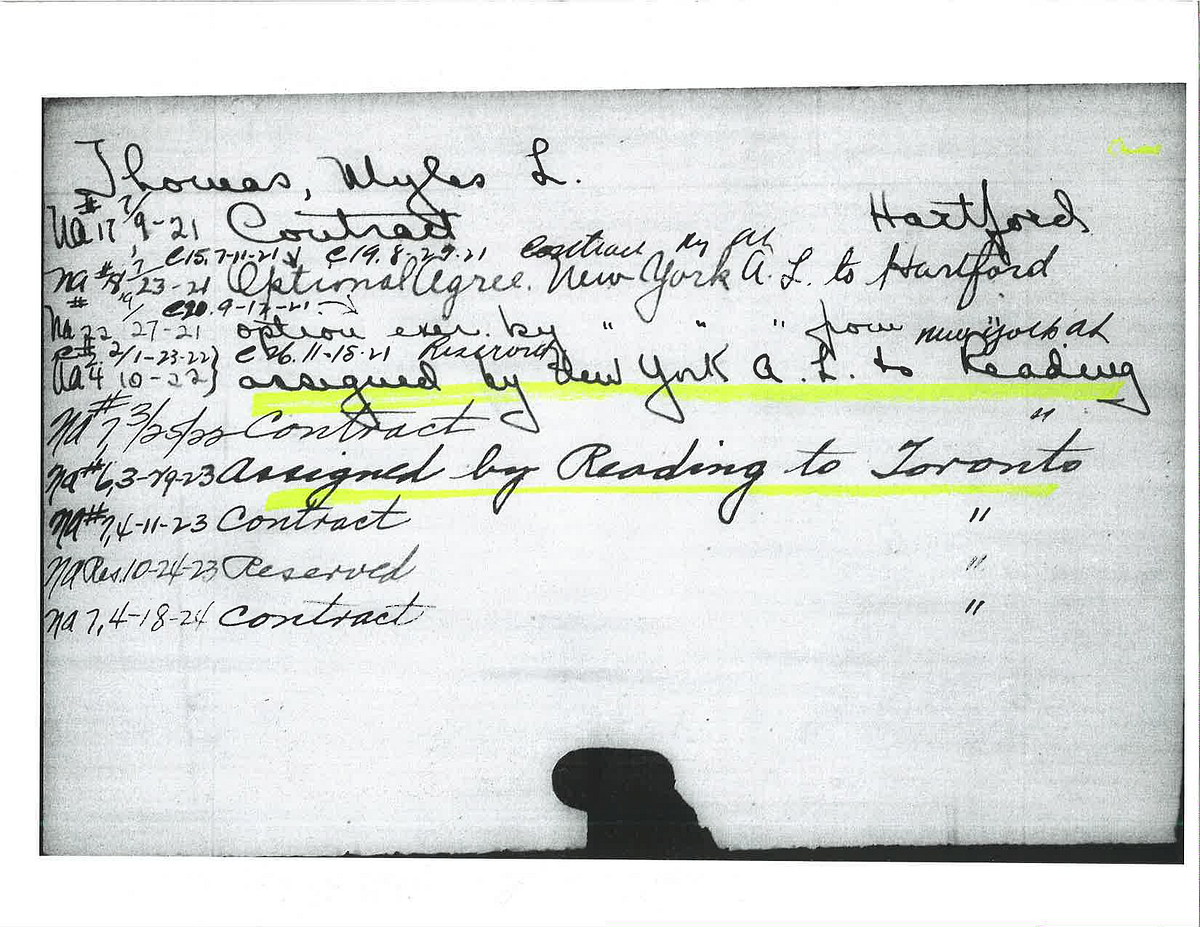 Thomas, Myles L.
Na #17 7/9-21 Contract Hartford
C15.7-11-21 C19.8-29-21 Contract NY AL
Na #18 7/23-21 Optional Agree. New York A. L. to Hartford
C20.9-17-21
Na #22 27-21 option exer. by " " " from New York AL
2/1-23-22) C26.11-15-21 Reserved
Na 4 10-22) assigned by New York A. L. to Reading
Na #7 3/25/22 Contract "
Na #6, 3-29-23 Assigned by Reading to Toronto
Na #7, 4-11-23 Contract "
Na Res. 10-24-23 Reserved "
Na 7, 4-18-24 Contract "